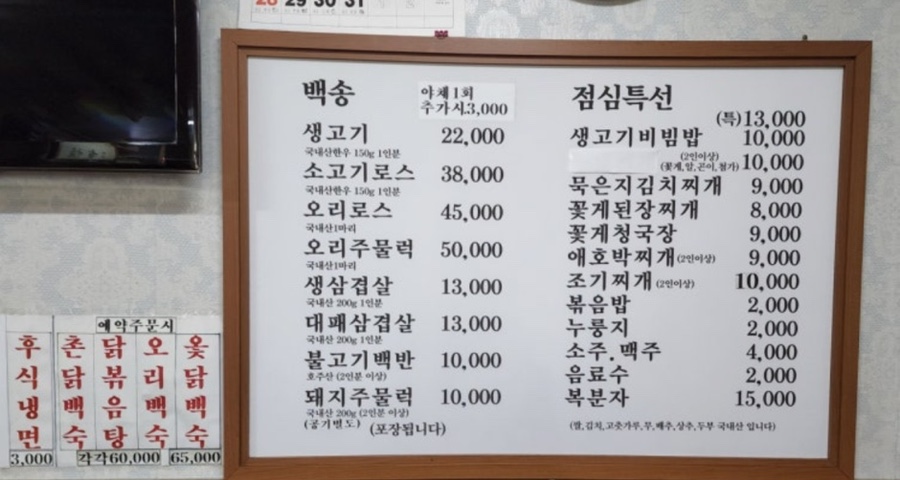 28 29 30 31
백송
야채1회
추가시3,000
생고기 22,000
국내산한우 150g 1인분
소고기로스 38,000
국내산한우 150g 1인분
오리로스 45,000
국내산1마리
오리주물럭 50,000
국내산1마리
생삼겹살 13,000
국내산 200g 1인분
대패삼겹살 13,000
국내산 200g 1인분
불고기백반 10,000
호주산 (2인분 이상)
돼지주물럭 10,000
국내산 200g (2인분 이상)
(공기별도) (포장됩니다)
점심특선
(특)13,000
생고기비빔밥 10,000
(2인이상)
(꽃게,알,곤이,첨가) 10,000
묵은지김치찌개 9,000
꽃게된장찌개 8,000
꽃게청국장 9,000
애호박찌개(2인이상) 9,000
조기찌개(2인이상) 10,000
볶음밥 2,000
누룽지 2,000
소주.맥주 4,000
음료수 2,000
복분자 15,000
(쌀,김치,고춧가루,무,배추,상추,두부 국내산 입니다)
예약주문시
후식냉면
3,000
촌닭백숙
닭볶음탕
오리백숙
각각60,000
옻닭백숙
65,000